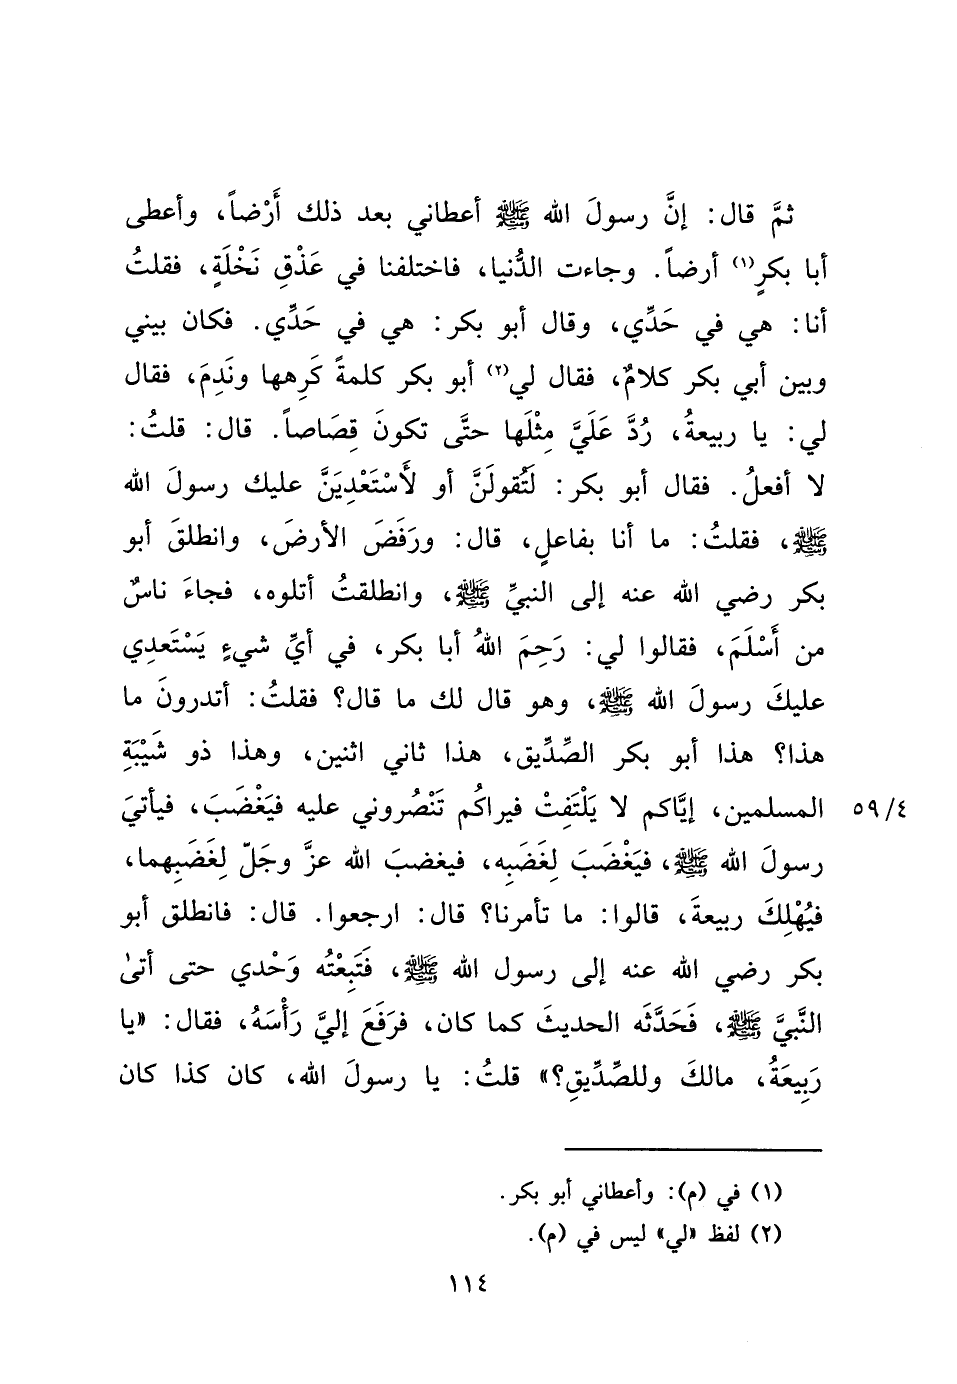 ثمَّ قال: إنَّ رسولَ الله ﷺ أعطاني بعد ذلك أَرْضاً، وأعطى
أبا بكرٍ(١) أرضاً. وجاءت الدُّنيا، فاختلفنا في عَذْقِ نَخْلَةٍ، فقلتُ
أنا: هي في حَدِّي، وقال أبو بكر: هي في حَدِّي. فكان بيني
وبين أبي بكر كلامٌ، فقال لي(٢) أبو بكر كلمةً كَرِهها ونَدِمَ، فقال
لي: يا ربيعةُ، رُدَّ عَلَيَّ مِثْلَها حتَّى تكونَ قِصَاصاً. قال: قلتُ:
لا أفعلُ. فقال أبو بكر: لَتَقولَنَّ أو لأَسْتَعْدِيَنَّ عليك رسولَ الله
ﷺ، فقلتُ: ما أنا بفاعلٍ، قال: ورَفَضَ الأرضَ، وانطلقَ أبو
بكر رضي الله عنه إلى النبيِّ ﷺ، وانطلقتُ أتلوه، فجاءَ ناسٌ
من أَسْلَمَ، فقالوا لي: رَحِمَ اللهُ أبا بكر، في أيِّ شيءٍ يَسْتَعدِي
عليكَ رسولَ الله ﷺ، وهو قال لك ما قال؟ فقلتُ: أتدرونَ ما
هذا؟ هذا أبو بكر الصِّدِّيق، هذا ثاني اثنين، وهذا ذو شَيْبَةِ
المسلمين، إيَّاكم لا يَلْتَفِتْ فيراكُم تَنْصُروني عليه فيَغْضَبَ، فيأتيَ ٥٩/٤
رسولَ الله ﷺ، فيَغْضَبَ لِغَضَبِه، فيغضبَ الله عزَّ وجَلّ لِغَضَبِهما،
فيُهْلِكَ ربيعةَ، قالوا: ما تأمرنا؟ قال: ارجعوا. قال: فانطلق أبو
بكر رضي الله عنه إلى رسول الله ﷺ، فَتَبِعْتُه وَحْدي حتى أتىٰ
النَّبيَّ ﷺ، فَحَدَّثَه الحديثَ كما كان، فرَفَعَ إليَّ رَأْسَهُ، فقال: «يا
رَبِيعَةُ، مالكَ وللصِّدِّيقِ؟» قلتُ: يا رسولَ الله، كان كذا كان
(١) في (م): وأعطاني أبو بكر.
(٢) لفظ «لي» ليس في (م).
١١٤